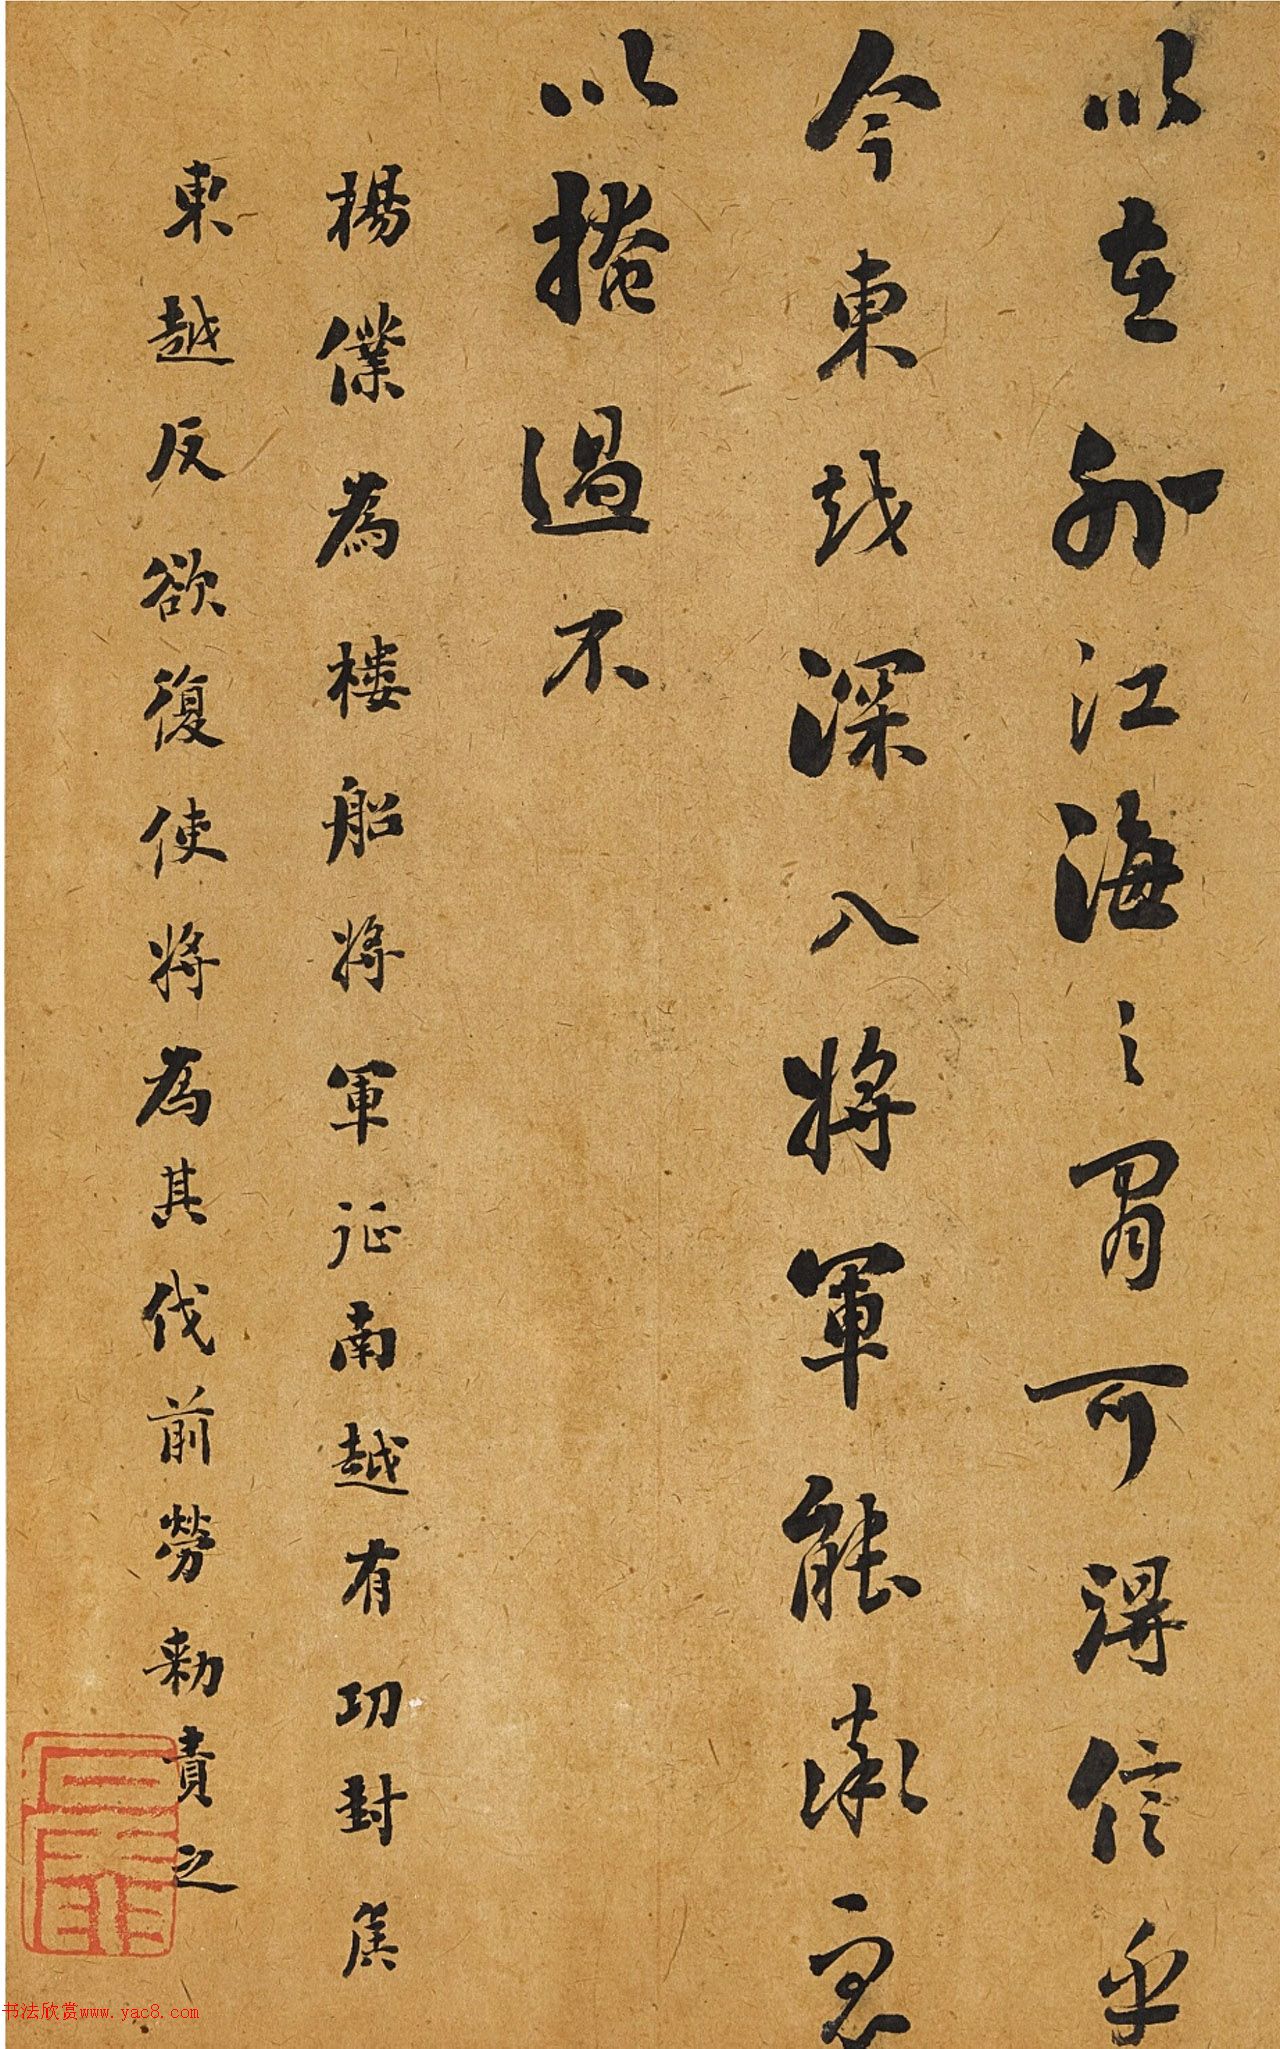 以在外江海之間可得信乎
今東越深入將軍能率衆
以掩過不
楊僕為樓船將軍征南越有功封侯
東越反欲復使將為其伐前勞勅責之
书法欣赏www.yac8.com